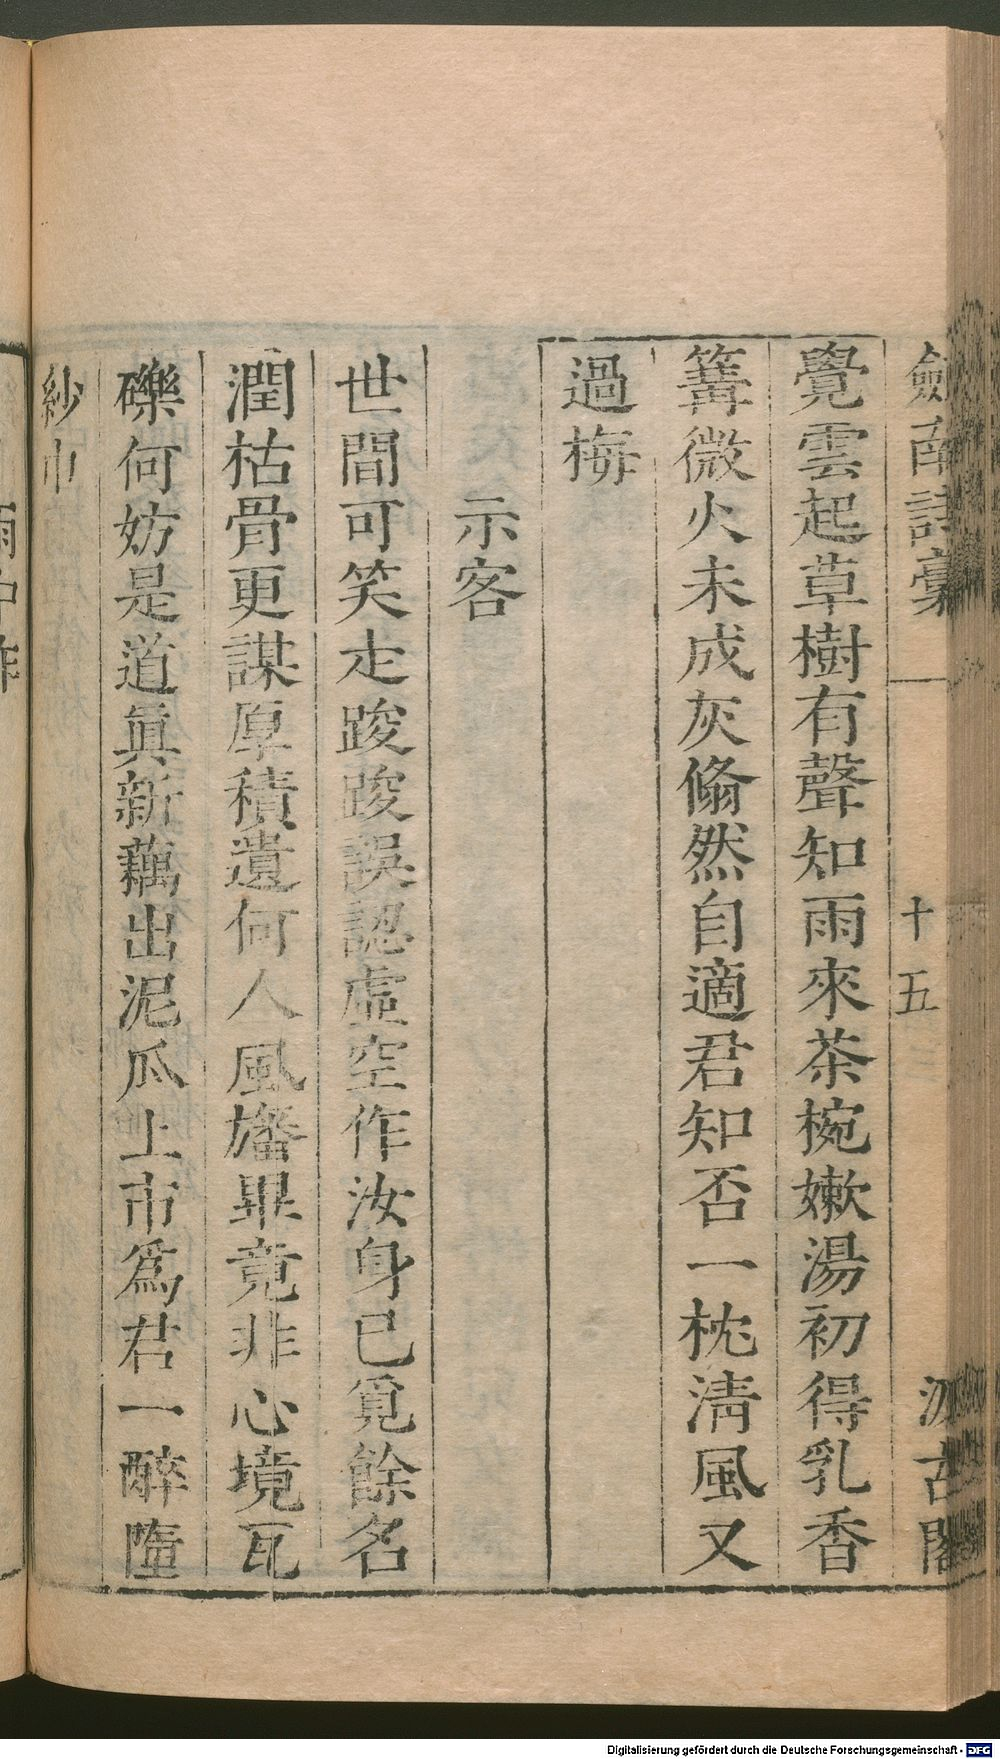 劍南詩稾　十五　汲古閣
覺雲起草樹有聲知雨來茶椀嫰湯初得乳香
篝微火未成灰翛然自適君知否一枕淸風又
過梅
示客
世間可笑走踆踆誤認虛空作汝身已覓餘名
潤枯骨更謀厚積遺何人風旛畢竟非心境瓦
礫何妨是道眞新藕出泥瓜上市爲君一醉墮
紗巾
雨中作
Digitalisierung gefördert durch die Deutsche Forschungsgemeinschaft - DFG